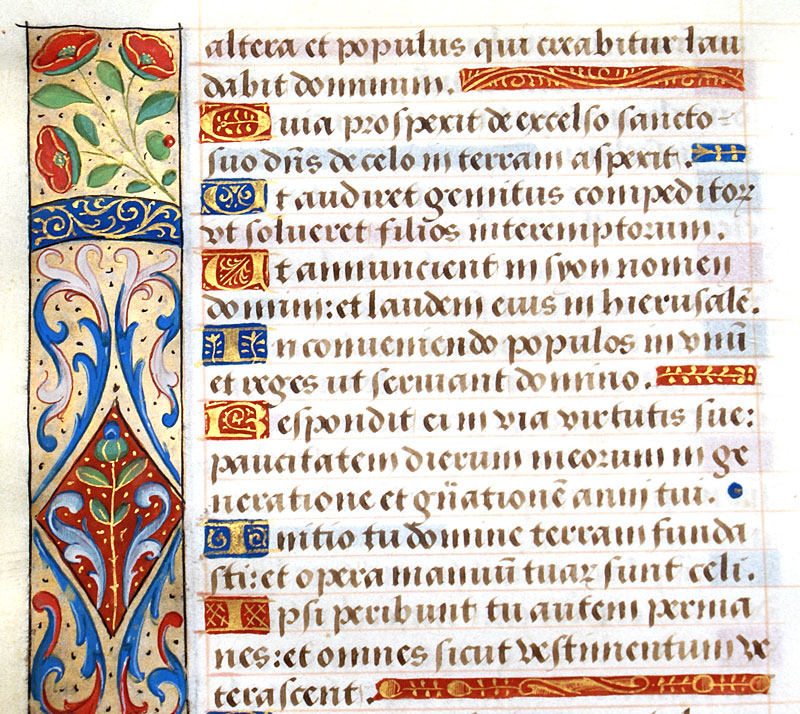 altera et populus qui creabitur lau
dabit dominum.
Quia prospexit de excelso sancto
suo dñs de celo in terram aspexit.
Et audiret gemitus compeditoꝝ
vt solueret filios interemptorum.
Et annuncient in syon nomen
domini: et laudem eius in hierusalē.
In conueniendo populos in vnū
et reges ut seruiant domino.
Respondit ei in via virtutis sue:
paucitatem dierum meorum in ge
neratione et gn̄ationē anni tui.
Initio tu domine terram funda
sti: et opera manuū tuaꝝ sunt celi.
Ipsi peribunt tu autem perma
nes: et omnes sicut vestimentum ve
terascent.